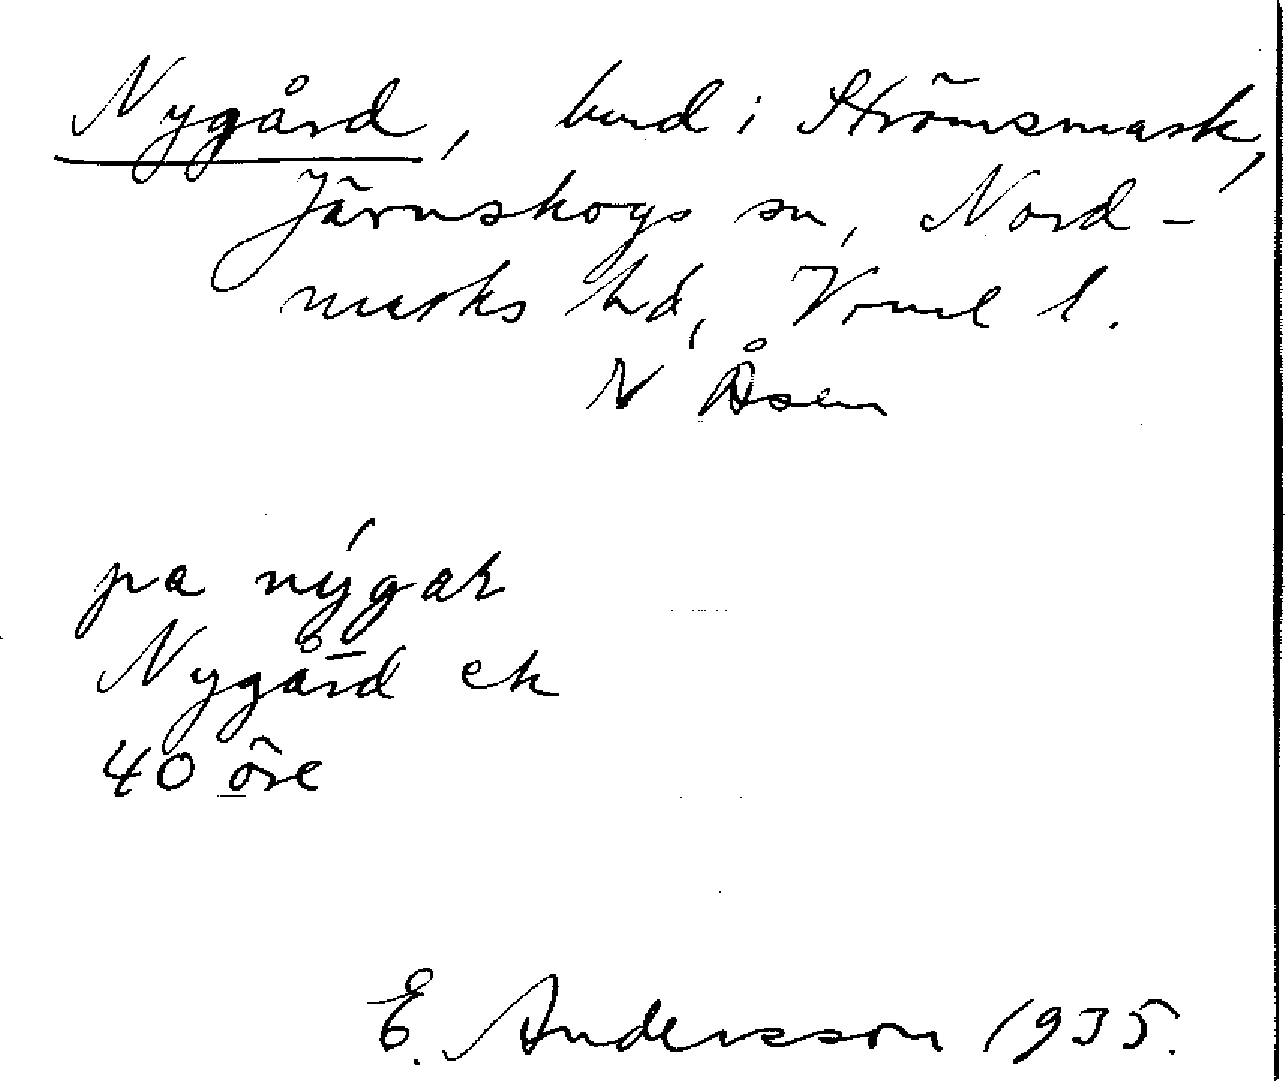 Nygård, bend i Strömsmark,
Järnskogs sn, Nord-
marks hd, Vrml l.
N Åsen
pa nýgaḱ
Nygård ek
40 öre
E. Andersson 1935.